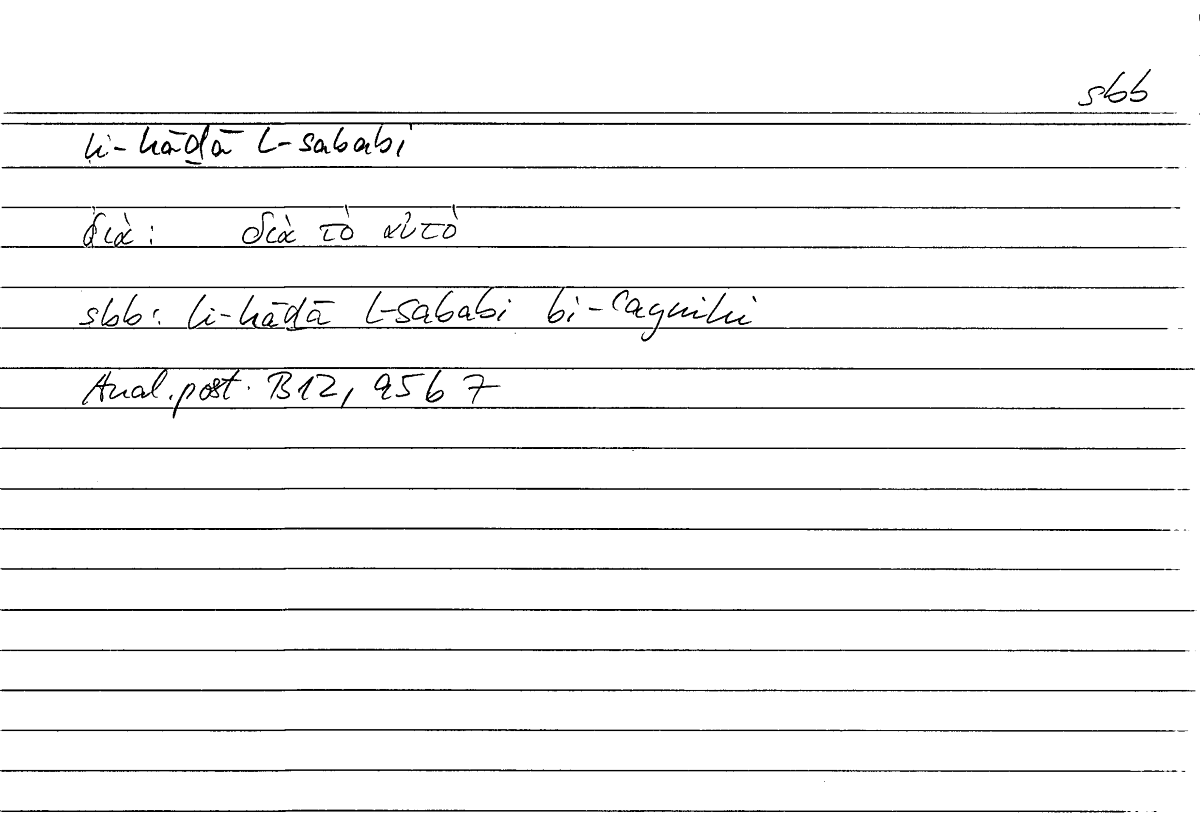 sbb
li-hāḏā l-sababi
διὰ: διὰ τὸ αὐτὸ
sbb: li-hāḏā l-sababi bi-ʿaynihi
Anal. post. B12, 95b 7